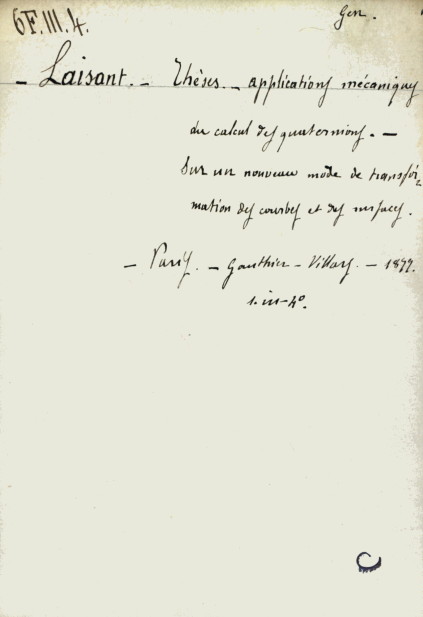 6F.III.4.
Gen.
- Laisant. - Thèses. - applications mécaniques
du calcul des quaternions. -
Sur un nouveau mode de transfor-
mation des courbes et des surfaces.
- Paris. - Gauthier-Villars. - 1877.
1. in-4º.